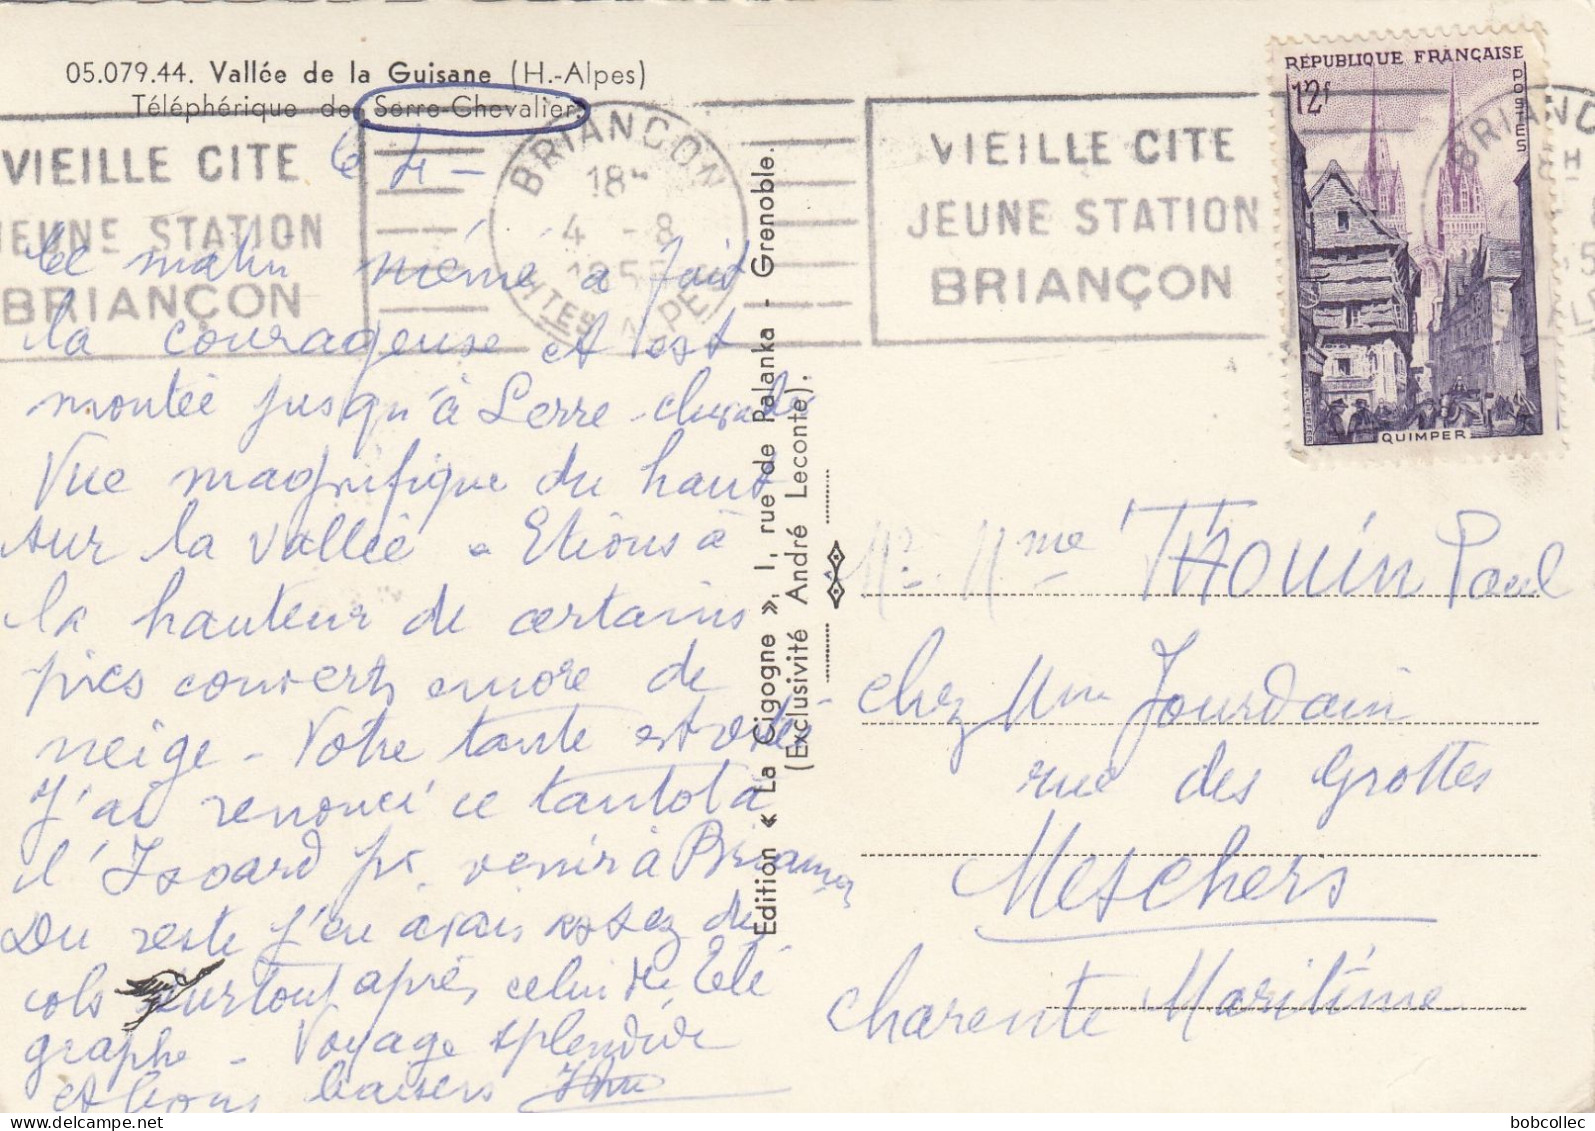 05.079.44. Vallée de la Guisane (H.-Alpes)
Téléphérique de Serre-Chevalier.
VIEILLE CITE
JEUNE STATION
BRIANÇON
BRIANÇON
18H
4 - 8
1955
HTES ALPES
VIEILLE CITE
JEUNE STATION
BRIANÇON
BRIANÇON
REPUBLIQUE FRANÇAISE
POSTES
12f
QUIMPER
le 4 -
Ce matin mémé a fait
la courageuse et est
montée jusqu'à Serre-chevalier
Vue magnifique du haut
sur la vallée - Etions à
la hauteur de certains
pics couverts encore de
neige - Votre tante
J'ai renoncé ce tantôt à
l'Isoard pr venir à Briançon
Du reste j'en avais assez des
cols surtout après celui du Télé
graphe - Voyage splendide
et bons baisers
Edition « La Cigogne », 1, rue de Palanka - Grenoble.
(Exclusivité André Leconte).
Mr Mme THOUIN Paul
chez Mme Jourdain
rue des Grottes
Meschers
Charente Maritime
bobcollec